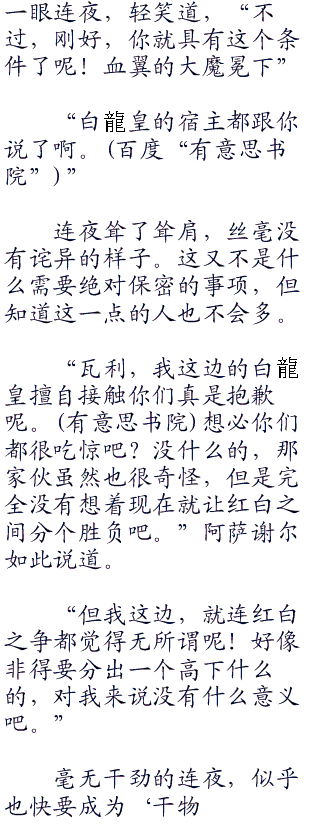 一眼连夜，轻笑道，“不
过，刚好，你就具有这个条
件了呢！血翼的大魔冕下”
“白龍皇的宿主都跟你
说了啊。(百度“有意思书
院”)”
连夜耸了耸肩，丝毫没
有诧异的样子。这又不是什
么需要绝对保密的事项，但
知道这一点的人也不会多。
“瓦利，我这边的白龍
皇擅自接触你们真是抱歉
呢。(有意思书院)想必你们
都很吃惊吧？没什么的，那
家伙虽然也很奇怪，但是完
全没有想着现在就让红白之
间分个胜负吧。”阿萨谢尔
如此说道。
“但我这边，就连红白
之争都觉得无所谓呢！好像
非得要分出一个高下什么
的，对我来说没有什么意义
吧。”
毫无干劲的连夜，似乎
也快要成为‘干物